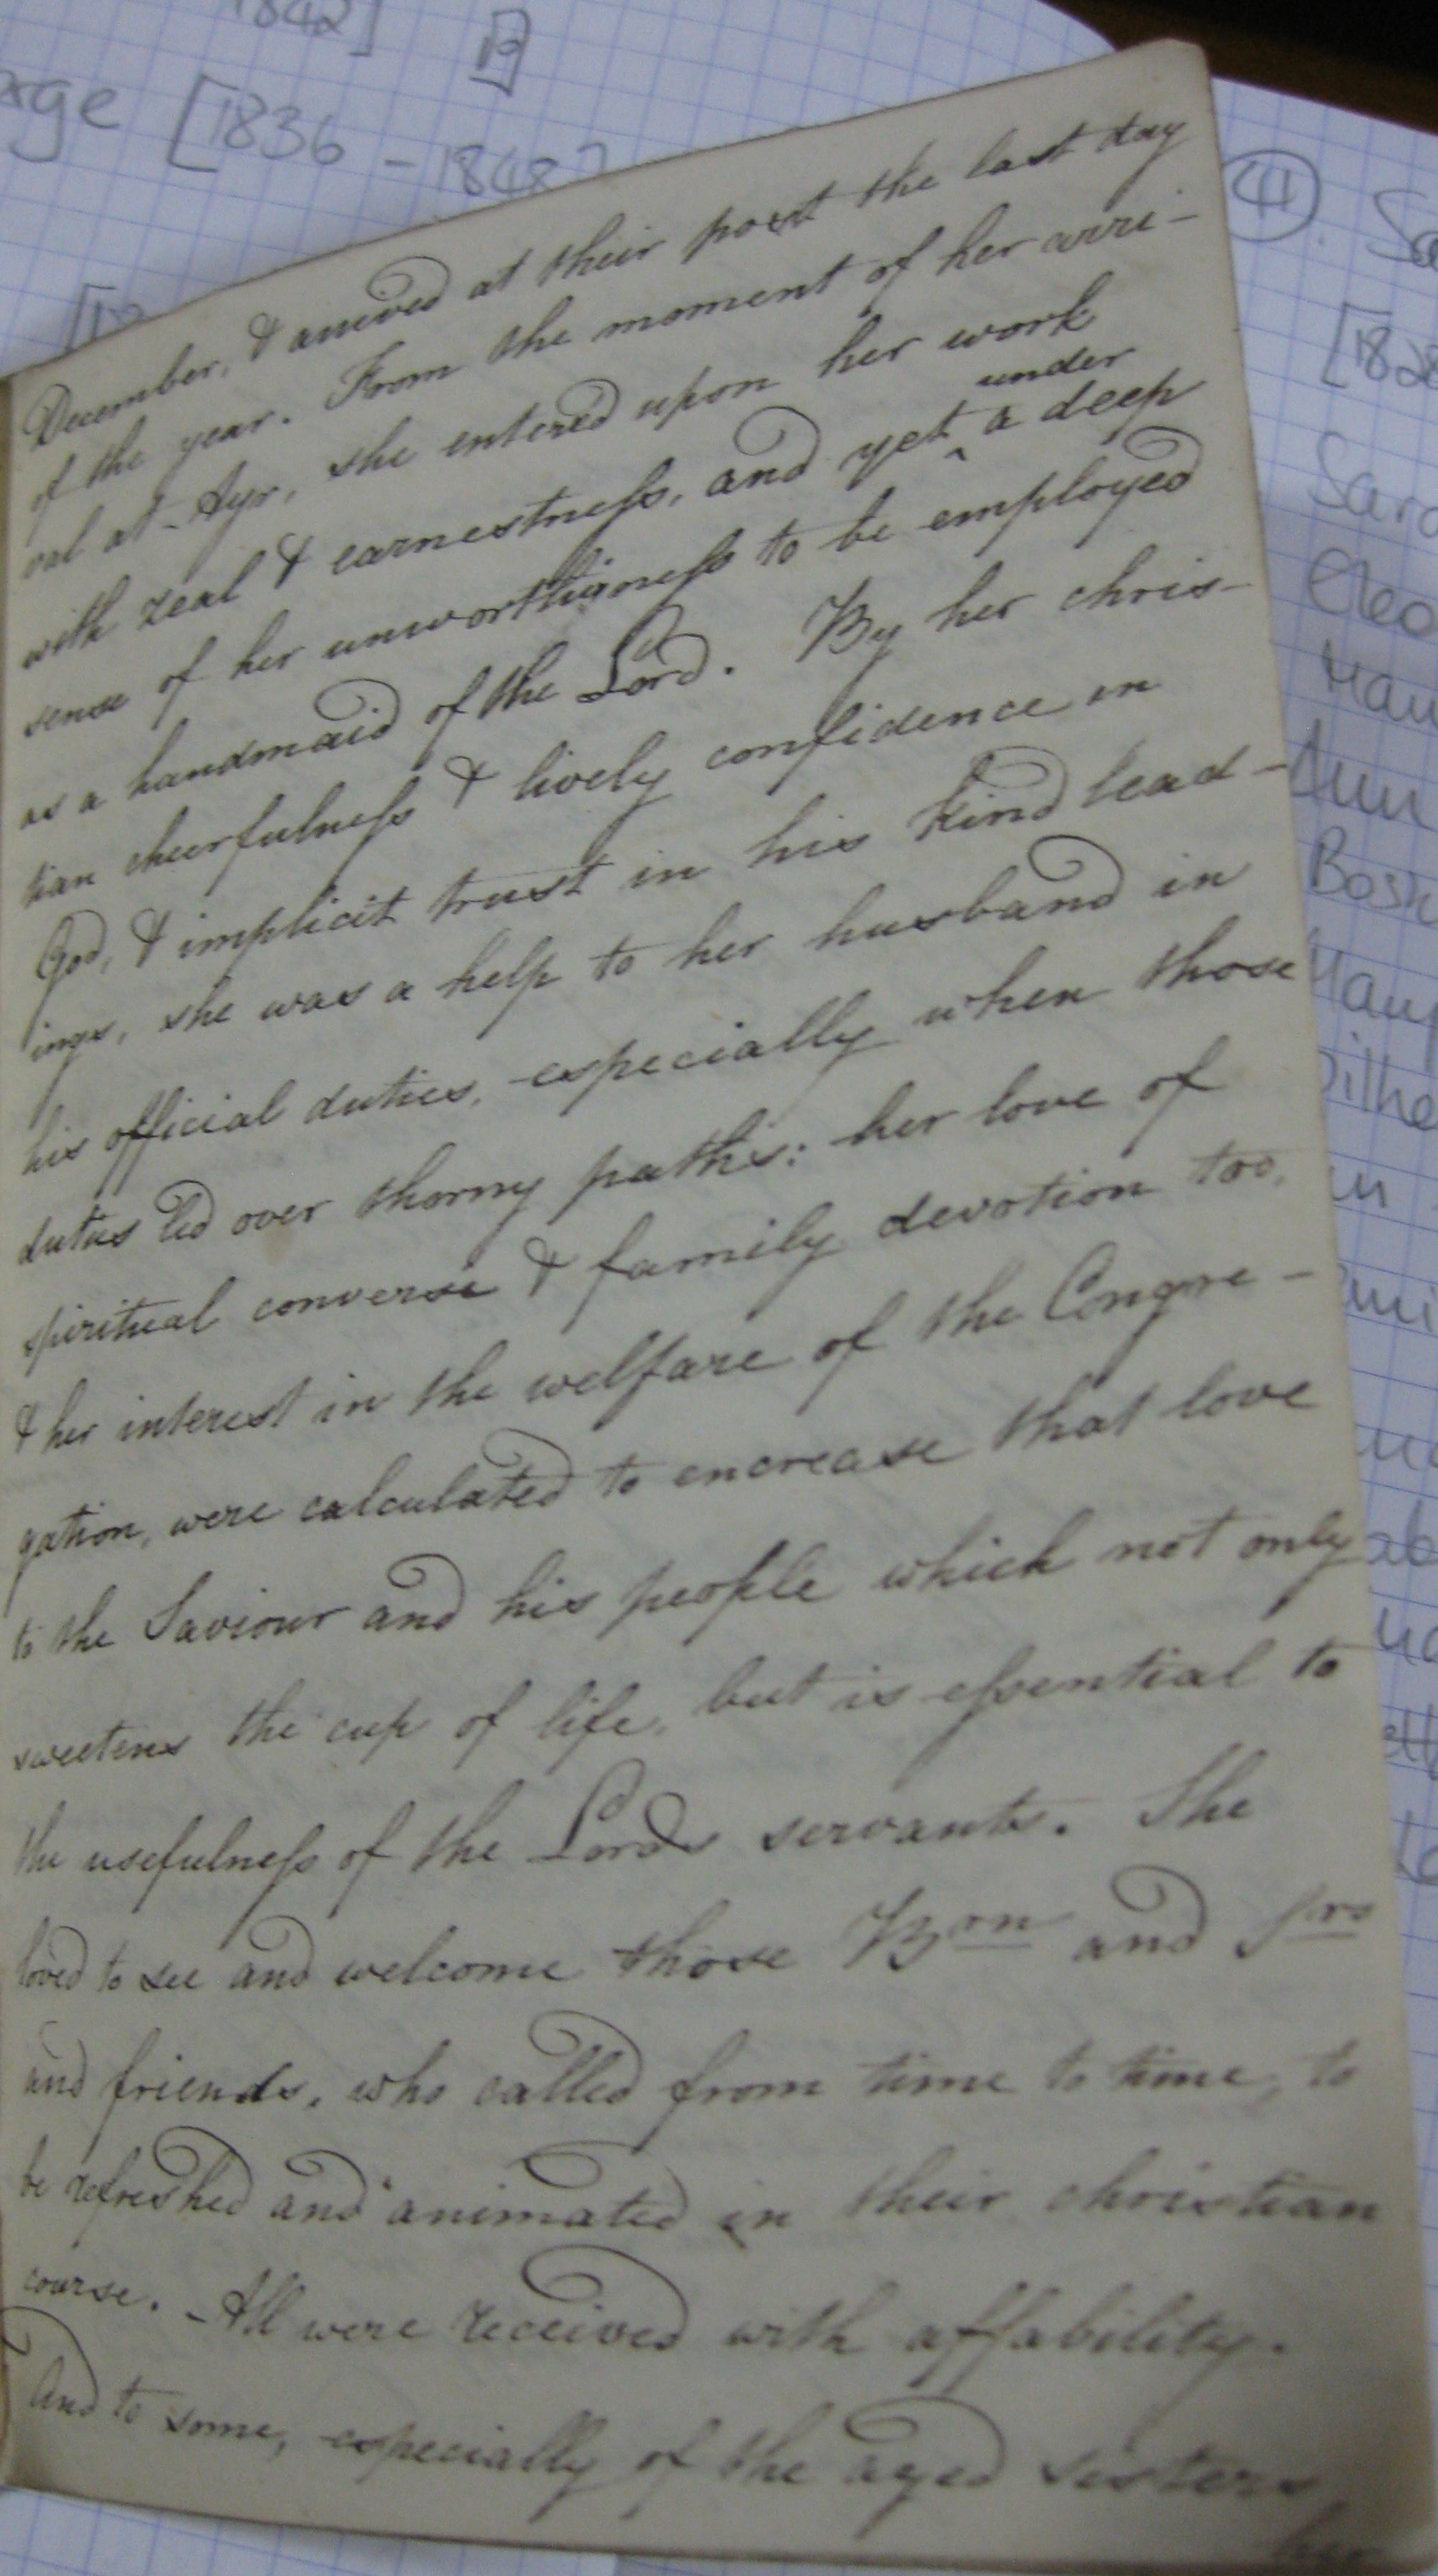 1842]
19
[1836 - 1848]
41
[1828
December, & arrived at their post the last day
of the year. From the moment of her arri-
val at Ayr, she entered upon her work
under
with zeal & earnestness, and yet ‸ a deep
sense of her unworthiness to be employed
as a handmaid of the Lord. By her chris-
tian cheerfulness & lively confidence in
God, & implicit trust in his kind lead-
ings, she was a help to her husband in
his official duties, especially when those
duties led over thorny paths: her love of
spiritual converse & family devotion too,
& her interest in the welfare of the Congre-
gation, were calculated to encrease that love
to the Saviour and his people which not only
sweetens the cup of life, but is essential to
the usefulness of the Lords servants. She
loved to see and welcome those Brn and Srs
and friends, who called from time to time, to
be refreshed and animated in their christian
course. All were received with affability.
And to some, especially of the aged sisters
her